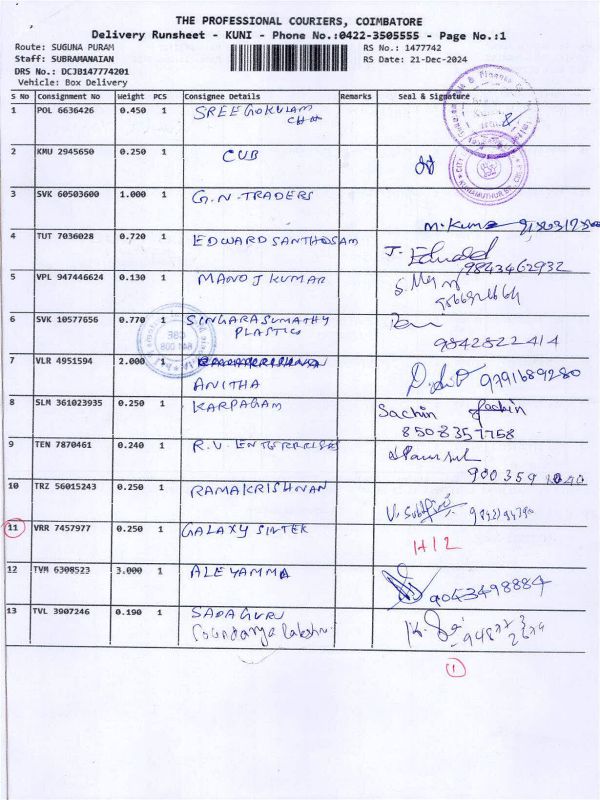 THE PROFESSIONAL COURIERS, COIMBATORE
Delivery Runsheet - KUNI - Phone No.:0422-3505555 - Page No.:1
Route: SUGUNA PURAM RS No.: 1477742
Staff: SUBRAMANAIAN RS Date: 21-Dec-2024
DRS No.: DCJB147774201
Vehicle: Box Delivery
S No Consignment No Weight PCS Consignee Details Remarks Seal & Signature
1 POL 6636426 0.450 1 SREE GOKULAM
2 KMU 2945650 0.250 1 CUB
3 SVK 60503600 1.000 1 G.N. TRADERS
4 TUT 7036028 0.720 1 EDWARD SANTHOSAM
9843462932
5 VPL 947446624 0.130 1 MANOJ KUMAR
6 SVK 10577656 0.770 1 SINGARASUMATHY
PLASTIC
9842822414
7 VLR 4951594 2.000 1
ANITHA 9791689280
8 SLM 361023935 0.250 1 KARPAGAM Sachin
8508357758
9 TEN 7870461 0.240 1 R.V. ENTERRRISES
10 TRZ 56015243 0.250 1 RAMAKRISHNAN
11 VRR 7457977 0.250 1 GALAXY SINTEK
12 TVM 6308523 3.000 1 ALEYAMMA
9043498884
13 TVL 3907246 0.190 1 SADAGURU
Soundarya Lakshmi
1